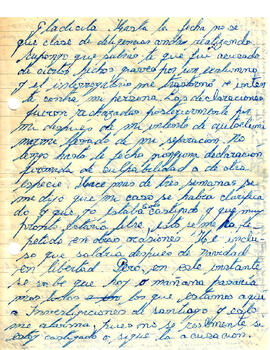 Gladicula Hasta la fecha no se
que clase de diligencias andas realizando
supongo que sabrás lo que fui acusado
de ciertos hechos graves por un testimonio
y el interrogatorio me trastornó e inten
té contra mi persona. Las declaraciones
fueron rechazadas posteriormente por
mi despues de mi intento de
forzado de mi separacion. No
tengo hasta la fecha ninguna declaracion
firmada de culpabilidad o de otra
especie. Hace mas de tres semanas se
me dijo que mi caso se habia clarifica
do y que no estaba castigado y que muy
pronto estaria libre, esto se me ha re
petido en otras ocasiones. Me inclu
so que saldria despues de navidad
en libertad. Pero, en este instante
se sabe que hoy o mañana pasaria
mos todos los que estamos aqui
a Investigaciones de santiago y esto
me alarma, pues no se realmente si
estoy castigado o sigue la acusacion.